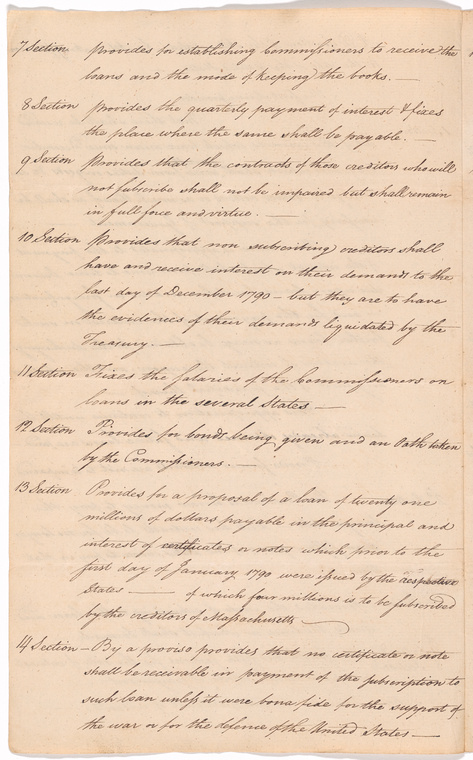 7 Section provides for establishing Commissioners to receive the
loans and the mode of keeping the books. —
8 Section provides the quarterly payment of interest & fixes
the place where the same shall be payable. —
9 Section Provides that the contracts of those creditors who will
not subscribe shall not be impaired but shall remain
in full force and virtue. —
10 Section Provides that non subscribing creditors shall
have and receive interest on their demands to the
last day of December 1790 – but they are to have
the evidences of their demands liquidated by the
Treasury. —
11 Section Fixes the salaries of the Commissioners on
loans in the several States —
12 Section Provides for bonds being given and an Oath taken
by the Commissioners. —
13 Section Provides for a proposal of a loan of twenty one
millions of dollars payable in the principal and
interest of certificates or notes which prior to the
first day of January 1790 were issued by the respective
States — of which four millions is to be subscribed
by the creditors of Massachusetts —
14 Section – By a proviso provides that no certificate or note
shall be receivable in payment of the subscription to
such loan unless it were bona fide for the support of
the war or for the defence of the United States —